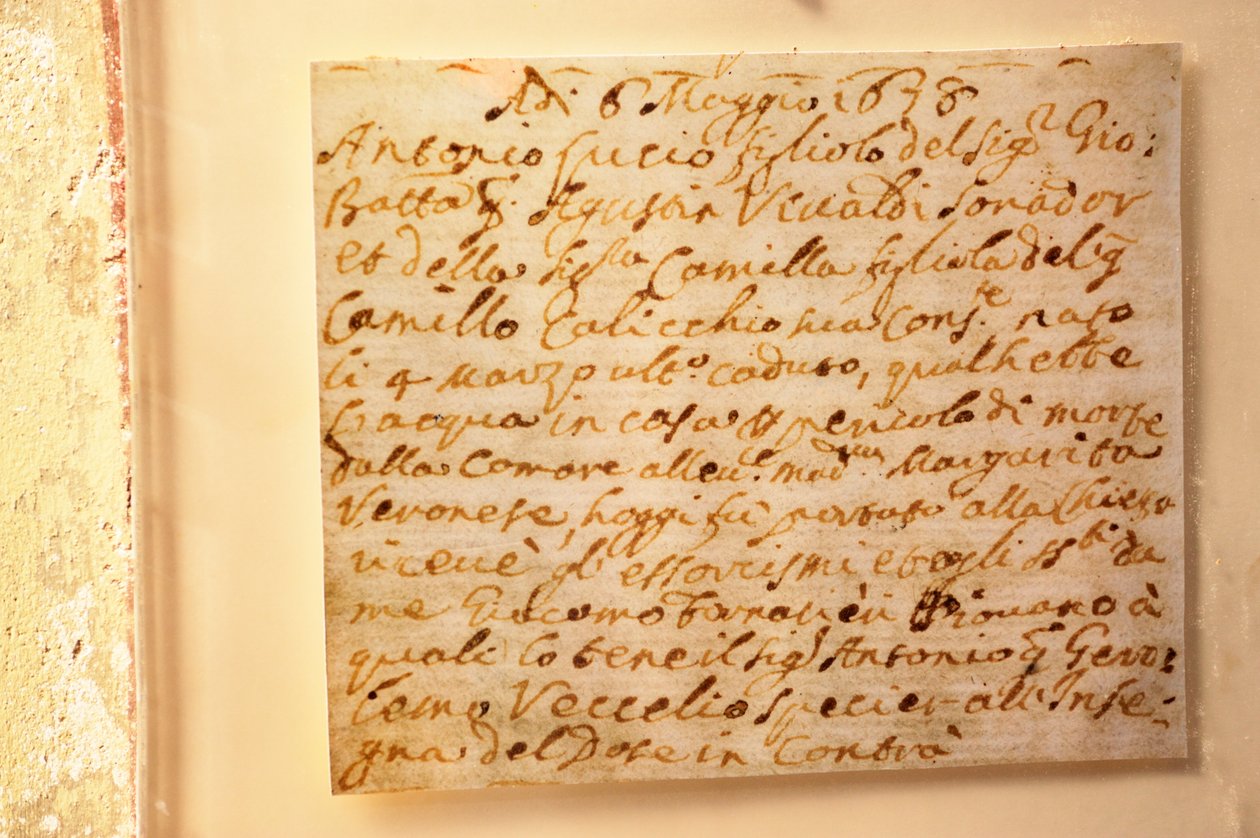 Adi 6 Maggio 1678
Antonio Lucio figliolo del Sigr Gio:
Batta q. Agustin Viualdi Sonador
et della Sigra Camilla figliola del q
Camillo Calicchio sua Conste nato
li 4 Marzo ulto. caduto, qual hebbe
l'acqua in casa p pericolo di morte
dalla Comare alleue. madma Margarita
Veronese, hoggi fù portato alla Chiesa
riceuè gl' essorcismi et ogli SSti da
me Giacomo Fornacieri Piouano à
quali lo tene il Sigr Antonio q Gero:
lemo Veccelio specier all' Inse-
gna del Dose in Contrà